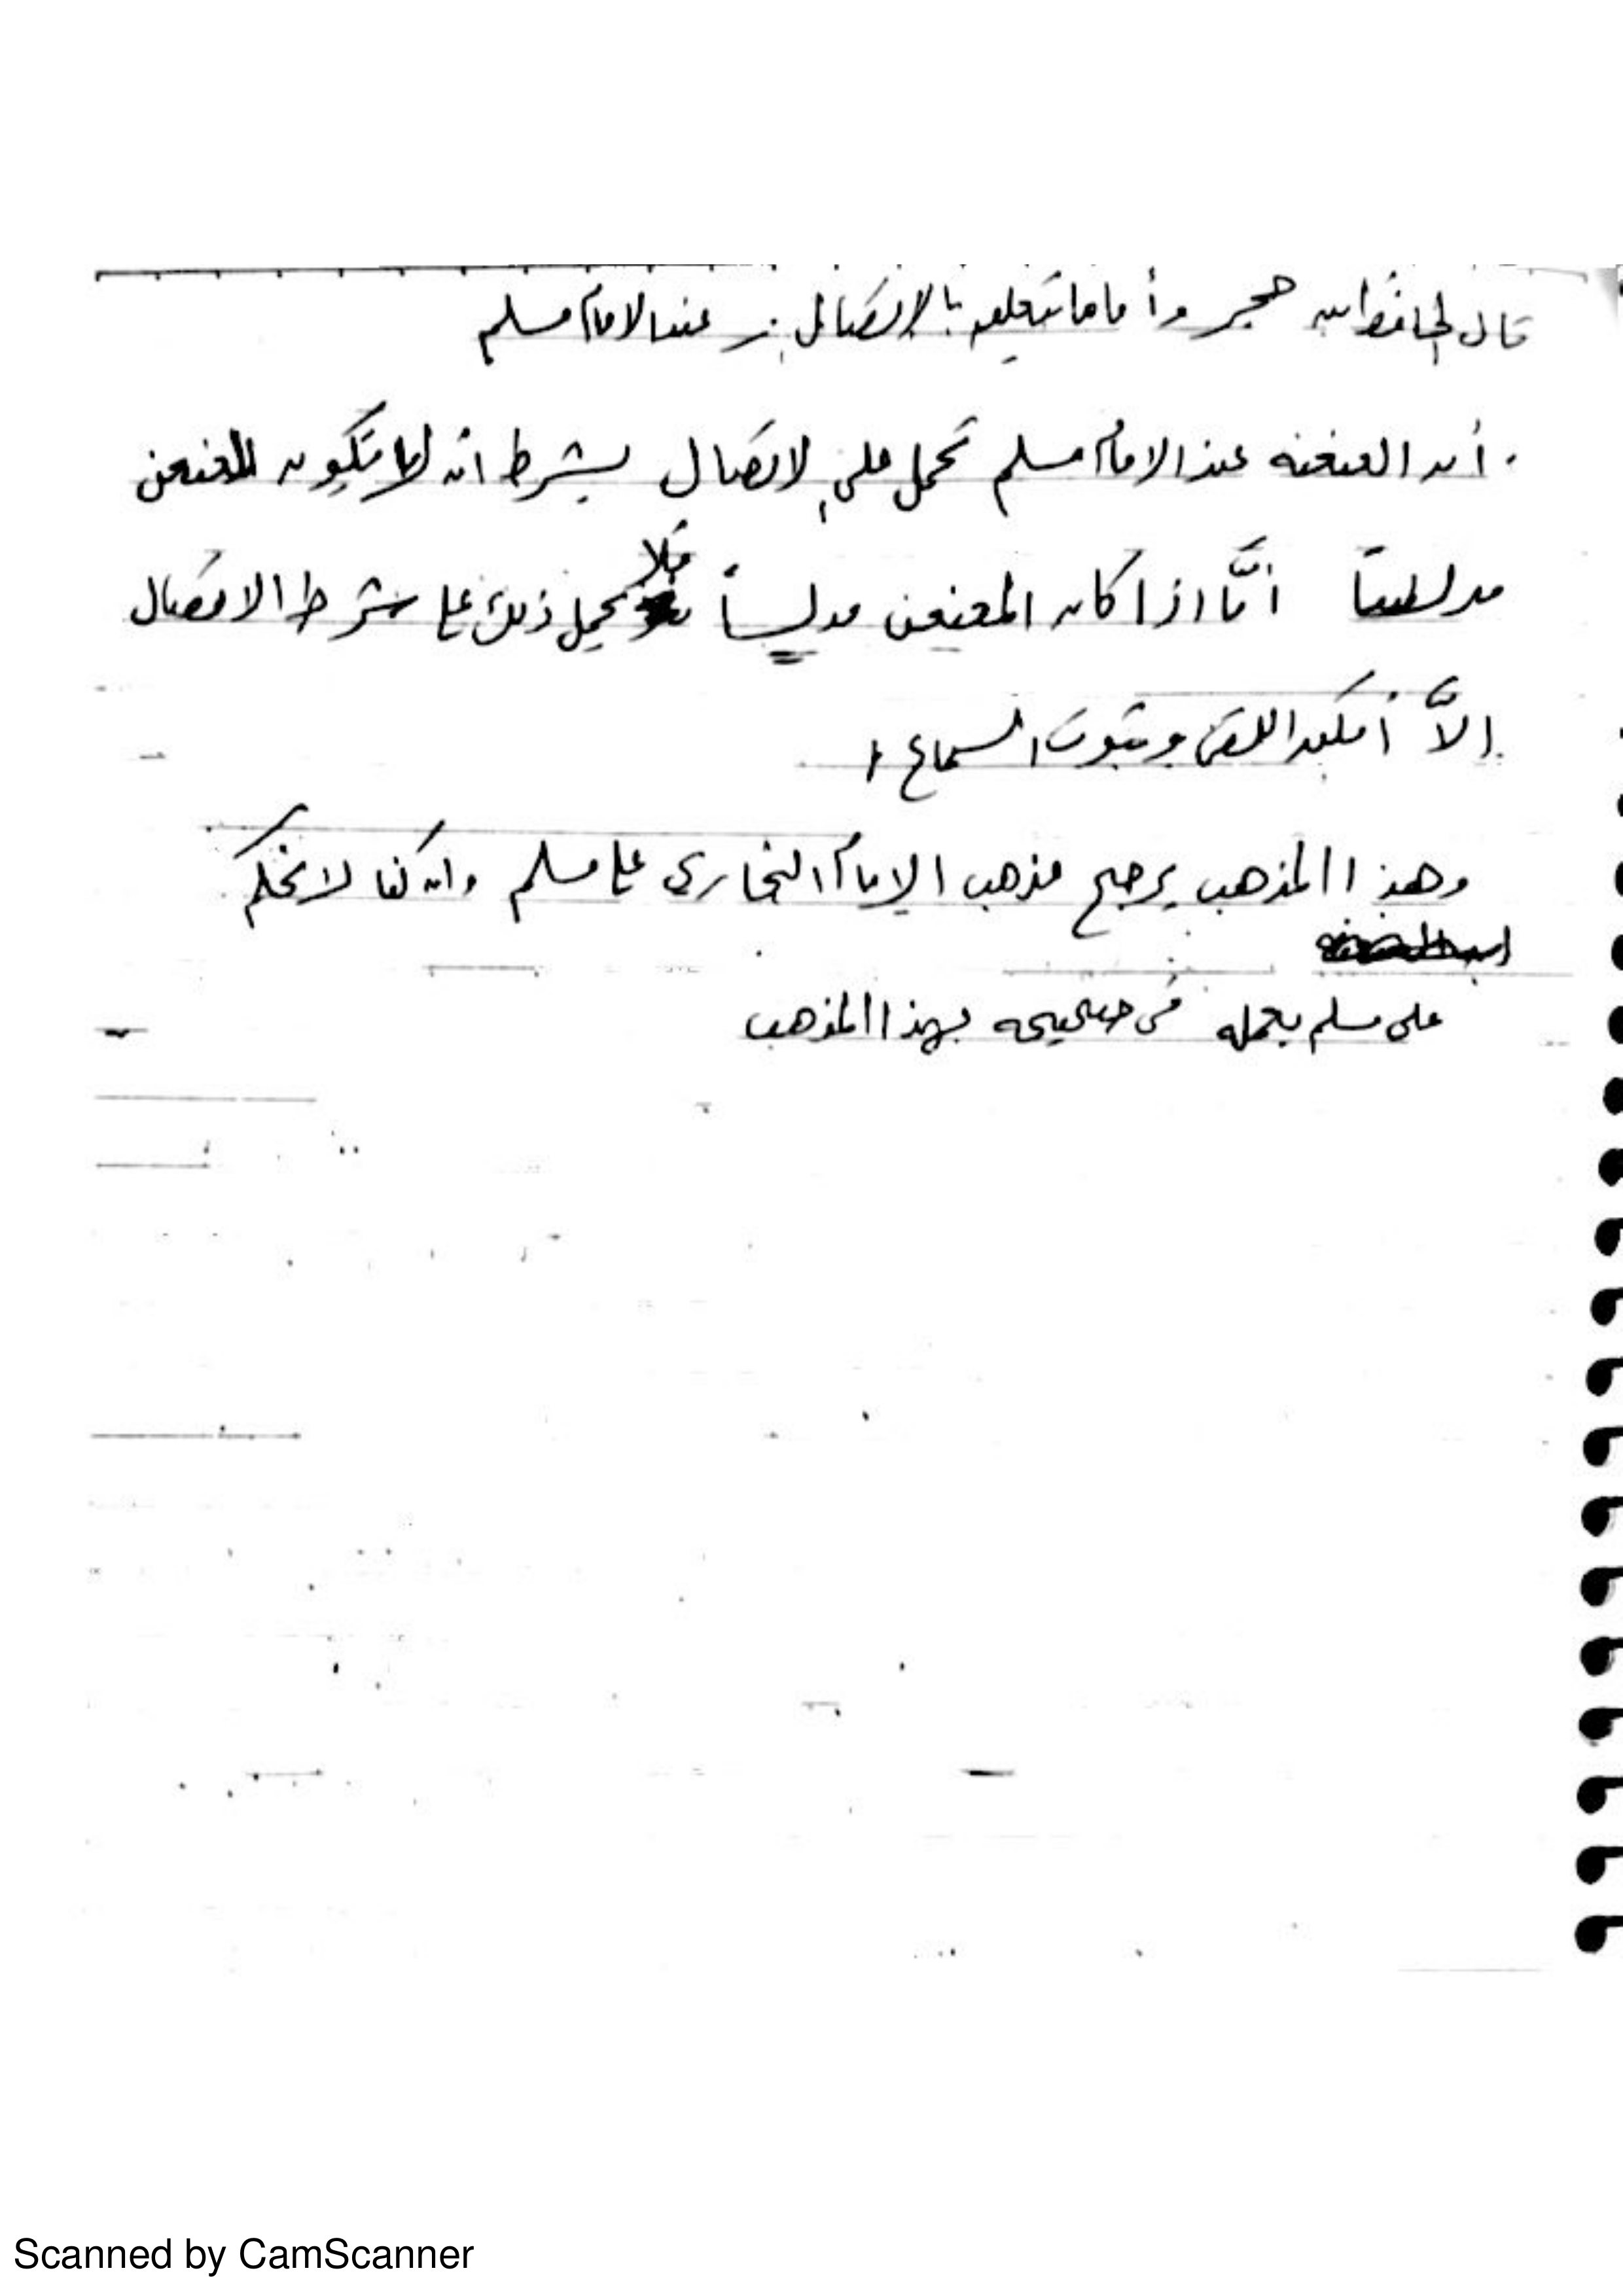 قال الحافظ ابن حجر وأما ما يتعلق بالاتصال عند الامام مسلم
. أن العنعنه عند الامام مسلم تحمل على لاتصال بشرط ان لا يكون المعنعن
مدلساً أمَّا اذا كان المعنعن مدلساً فلا يحمل ذلك على شرط الاتصال
إلاَّ أمكن اللقى وثبوت السماع
وهذا المذهب يرجح مذهب الإمام البخاري على مسلم وان كنا لا نحكم
على مسلم بعمله في صحيحه بهذا المذهب
Scanned by CamScanner